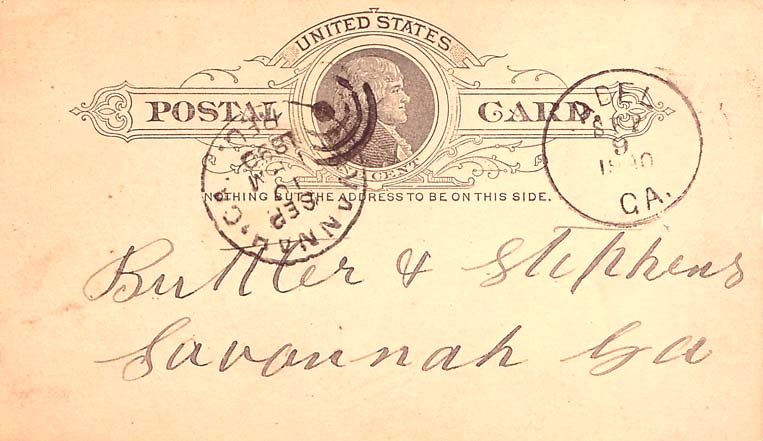 UNITED STATES
POSTAL CARD.
CENT
NOTHING BUT THE ADDRESS TO BE ON THIS SIDE.
SEP
9
GA.
SAVANNAH, GA.
REC'D.
SEP
10
Buttler & Stephens
Savannah Ga